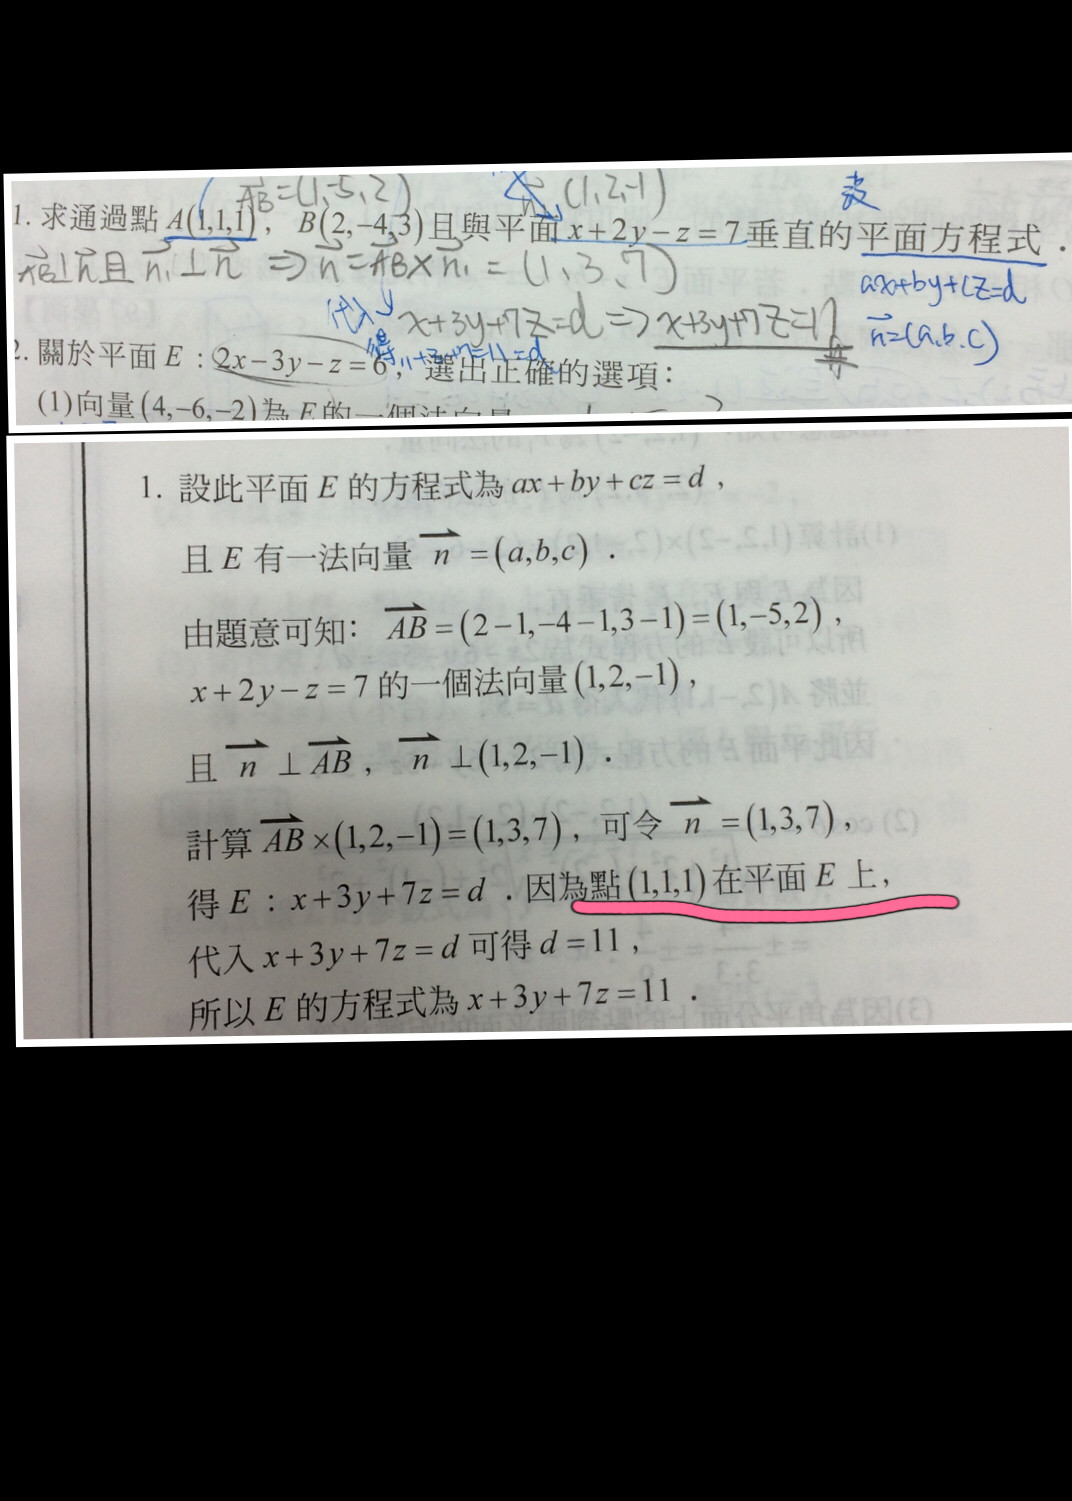 AB=(1,-5,2) (1,2,-1)
設
1. 求通過點 A(1,1,1), B(2,-4,3)且與平面 x+2y-z=7垂直的平面方程式.
AB⊥n且n₁⊥n ⇒ n=AB×n₁=(1,3,7)
ax+by+cz=d
代入 x+3y+7z=d⇒x+3y+7z=11
n=(a,b,c)
得1+3+7=11=d
2. 關於平面 E:2x-3y-z=6, 選出正確的選項:
(1)向量(4,-6,-2)為E的一個法向量
1. 設此平面 E 的方程式為 ax+by+cz=d,
且 E 有一法向量 n=(a,b,c).
由題意可知: AB=(2-1,-4-1,3-1)=(1,-5,2),
x+2y-z=7 的一個法向量(1,2,-1),
且 n⊥AB, n⊥(1,2,-1).
計算 AB×(1,2,-1)=(1,3,7), 可令 n=(1,3,7),
得 E:x+3y+7z=d.因為點(1,1,1)在平面 E 上,
代入 x+3y+7z=d 可得 d=11,
所以 E 的方程式為 x+3y+7z=11.